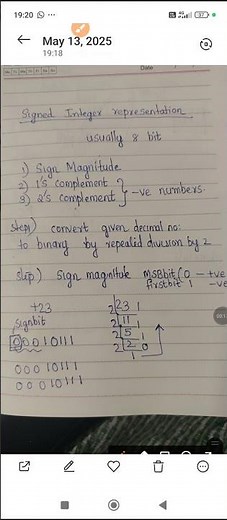 19:20
May 13, 2025
19:18
Date
Signed Integer representation
usually 8 bit
1) Sign Magnitude
2) 1's complement
3) 2's complement } -ve numbers.
step1) convert given decimal no:
to binary by repeated division by 2
step) sign magnitude MSBbit (0 - +ve
firstbit 1 -ve
+23
signbit
00010111
00010111
00010111
2 23 1
2 11 1
2 5 1
2 2 0
1